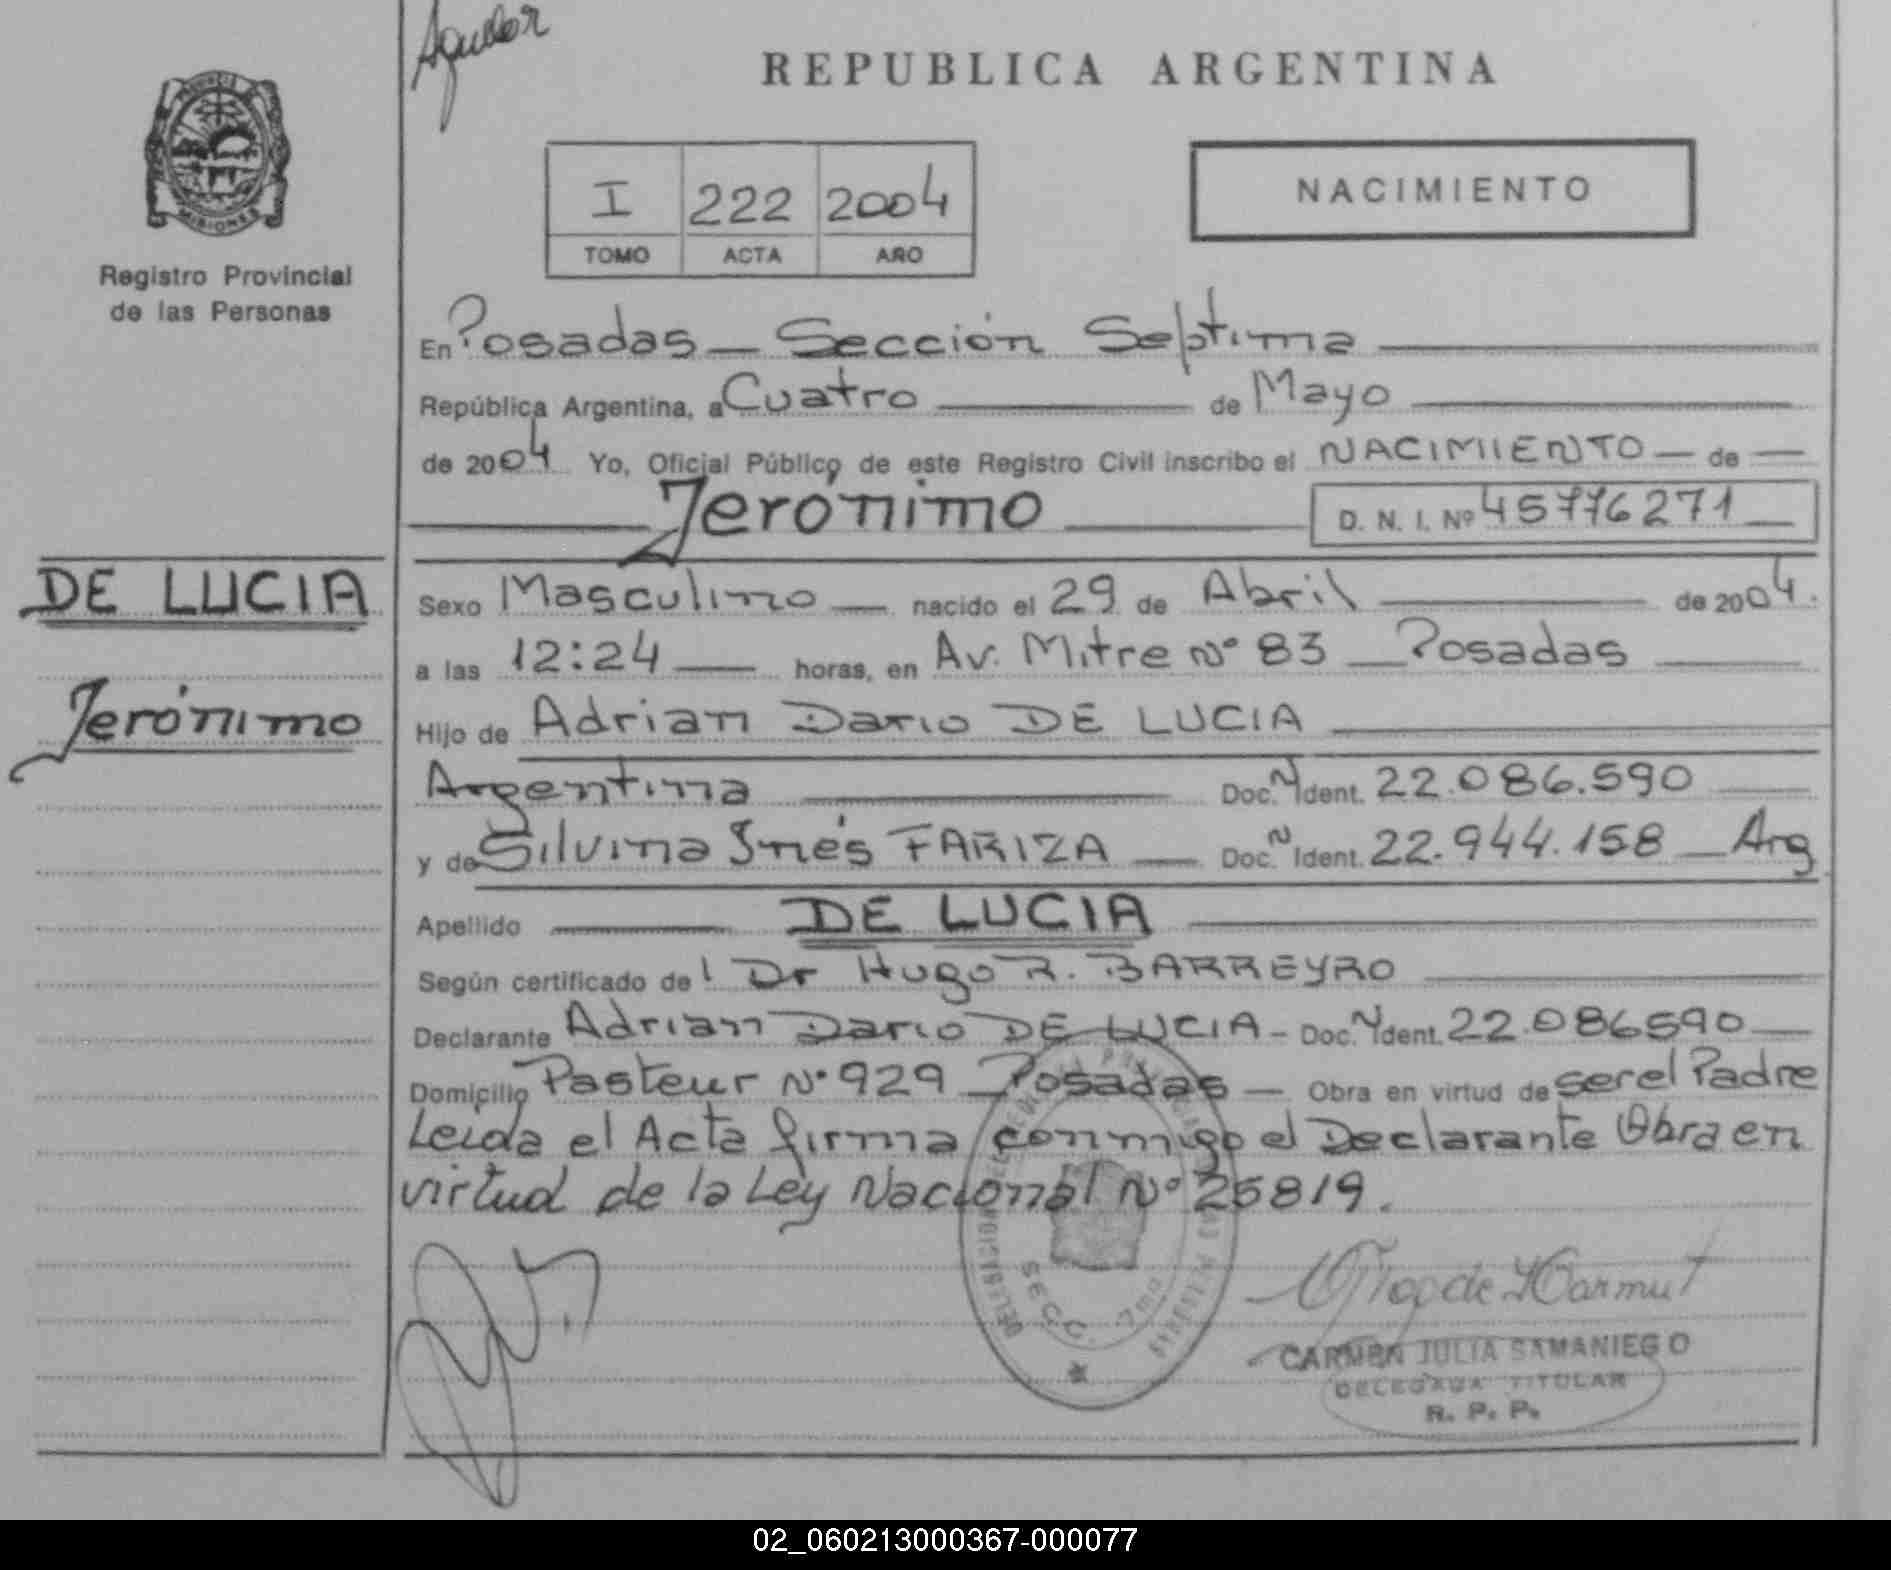 Aguilar
REPUBLICA ARGENTINA
MISIONES
Registro Provincial
de las Personas
I 222 2004
TOMO ACTA AÑO
NACIMIENTO
En Posadas — Sección Septima
República Argentina, a Cuatro de Mayo
de 2004 Yo, Oficial Público de este Registro Civil inscribo el NACIMIENTO — de —
Jerónimo
D. N. I. Nº 45776271
DE LUCIA
Jerónimo
Sexo Masculino — nacido el 29 de Abril de 2004.
a las 12:24 horas, en Av. Mitre Nº 83 — Posadas
Hijo de Adrian Dario DE LUCIA
Argentina Doc. N Ident. 22.086.590
y de Silvina Inés FARIZA — Doc. N Ident. 22.944.158 — Arg
Apellido DE LUCIA
Según certificado de Dr Hugo R. BARREYRO
Declarante Adrian Dario DE LUCIA - Doc. N Ident. 22.086590
Domicilio Pasteur Nº 929 — Posadas — Obra en virtud de ser el Padre
Leida el Acta firma conmigo el Declarante Obra en
virtud de la Ley Nacional Nº 25819.
SECC. 7ma
CARMEN JULIA SAMANIEGO
DELEGADA TITULAR
R. P. P.
02_060213000367-000077